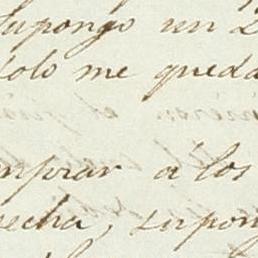 supongo un
solo me queda
mprar a los
echa, supon